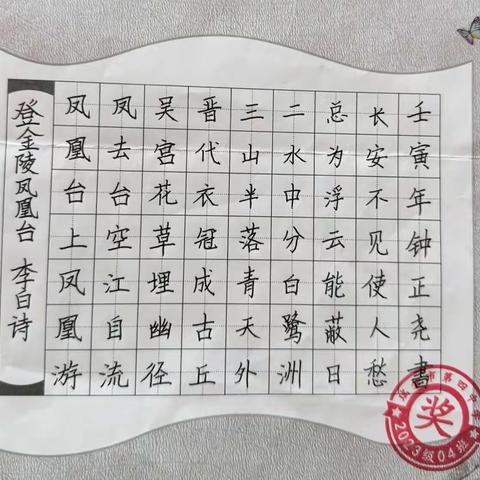 登金陵凤凰台 李白诗
凤凰台上凤凰游
凤去台空江自流
吴宫花草埋幽径
晋代衣冠成古丘
三山半落青天外
二水中分白鹭洲
总为浮云能蔽日
长安不见使人愁
壬寅年钟正尧書
市第四中
奖
2023级04班